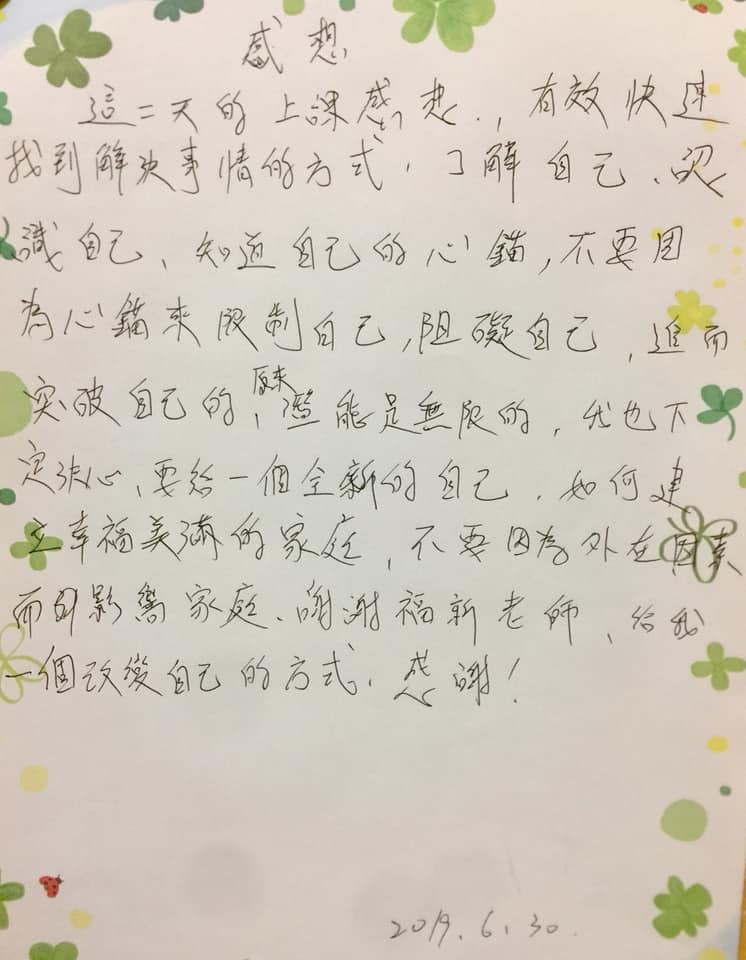 感想
這二天的上課感想.，有效快速
找到解決事情的方式，了解自己、認
識自己、知道自己的心錨，不要因
為心錨來限制自己，阻礙自己，進而
突破自己的，原來潛能是無限的，我也下
定決心、要給一個全新的自己．如何建
立幸福美滿的家庭，不要因為外在因素
而影響家庭、謝謝福新老師、給我
一個改變自己的方式．感謝！
2019.6.30.